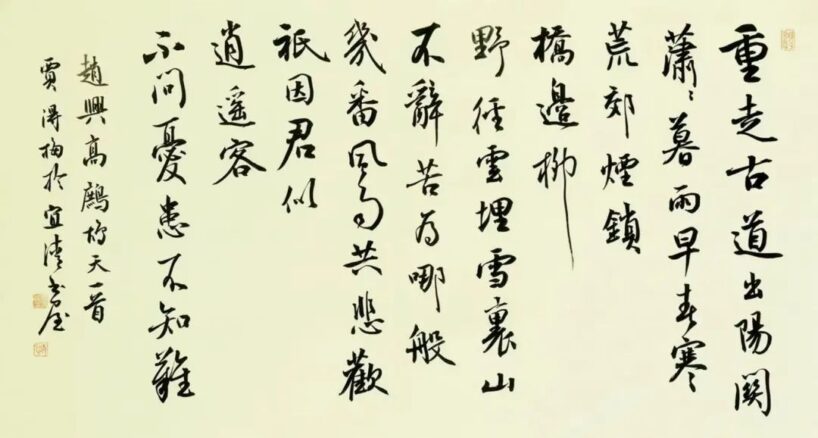 重走古道出陽關
蕭蕭暮雨早春寒
荒郊煙鎖
橋邊柳
野徑雲埋雪裏山
不辭苦為哪般
幾番風雨共悲歡
祇因君似
逍遙客
不問憂患不知難
趙興高鷓鴣天一首
賈得梅於宜清書屋